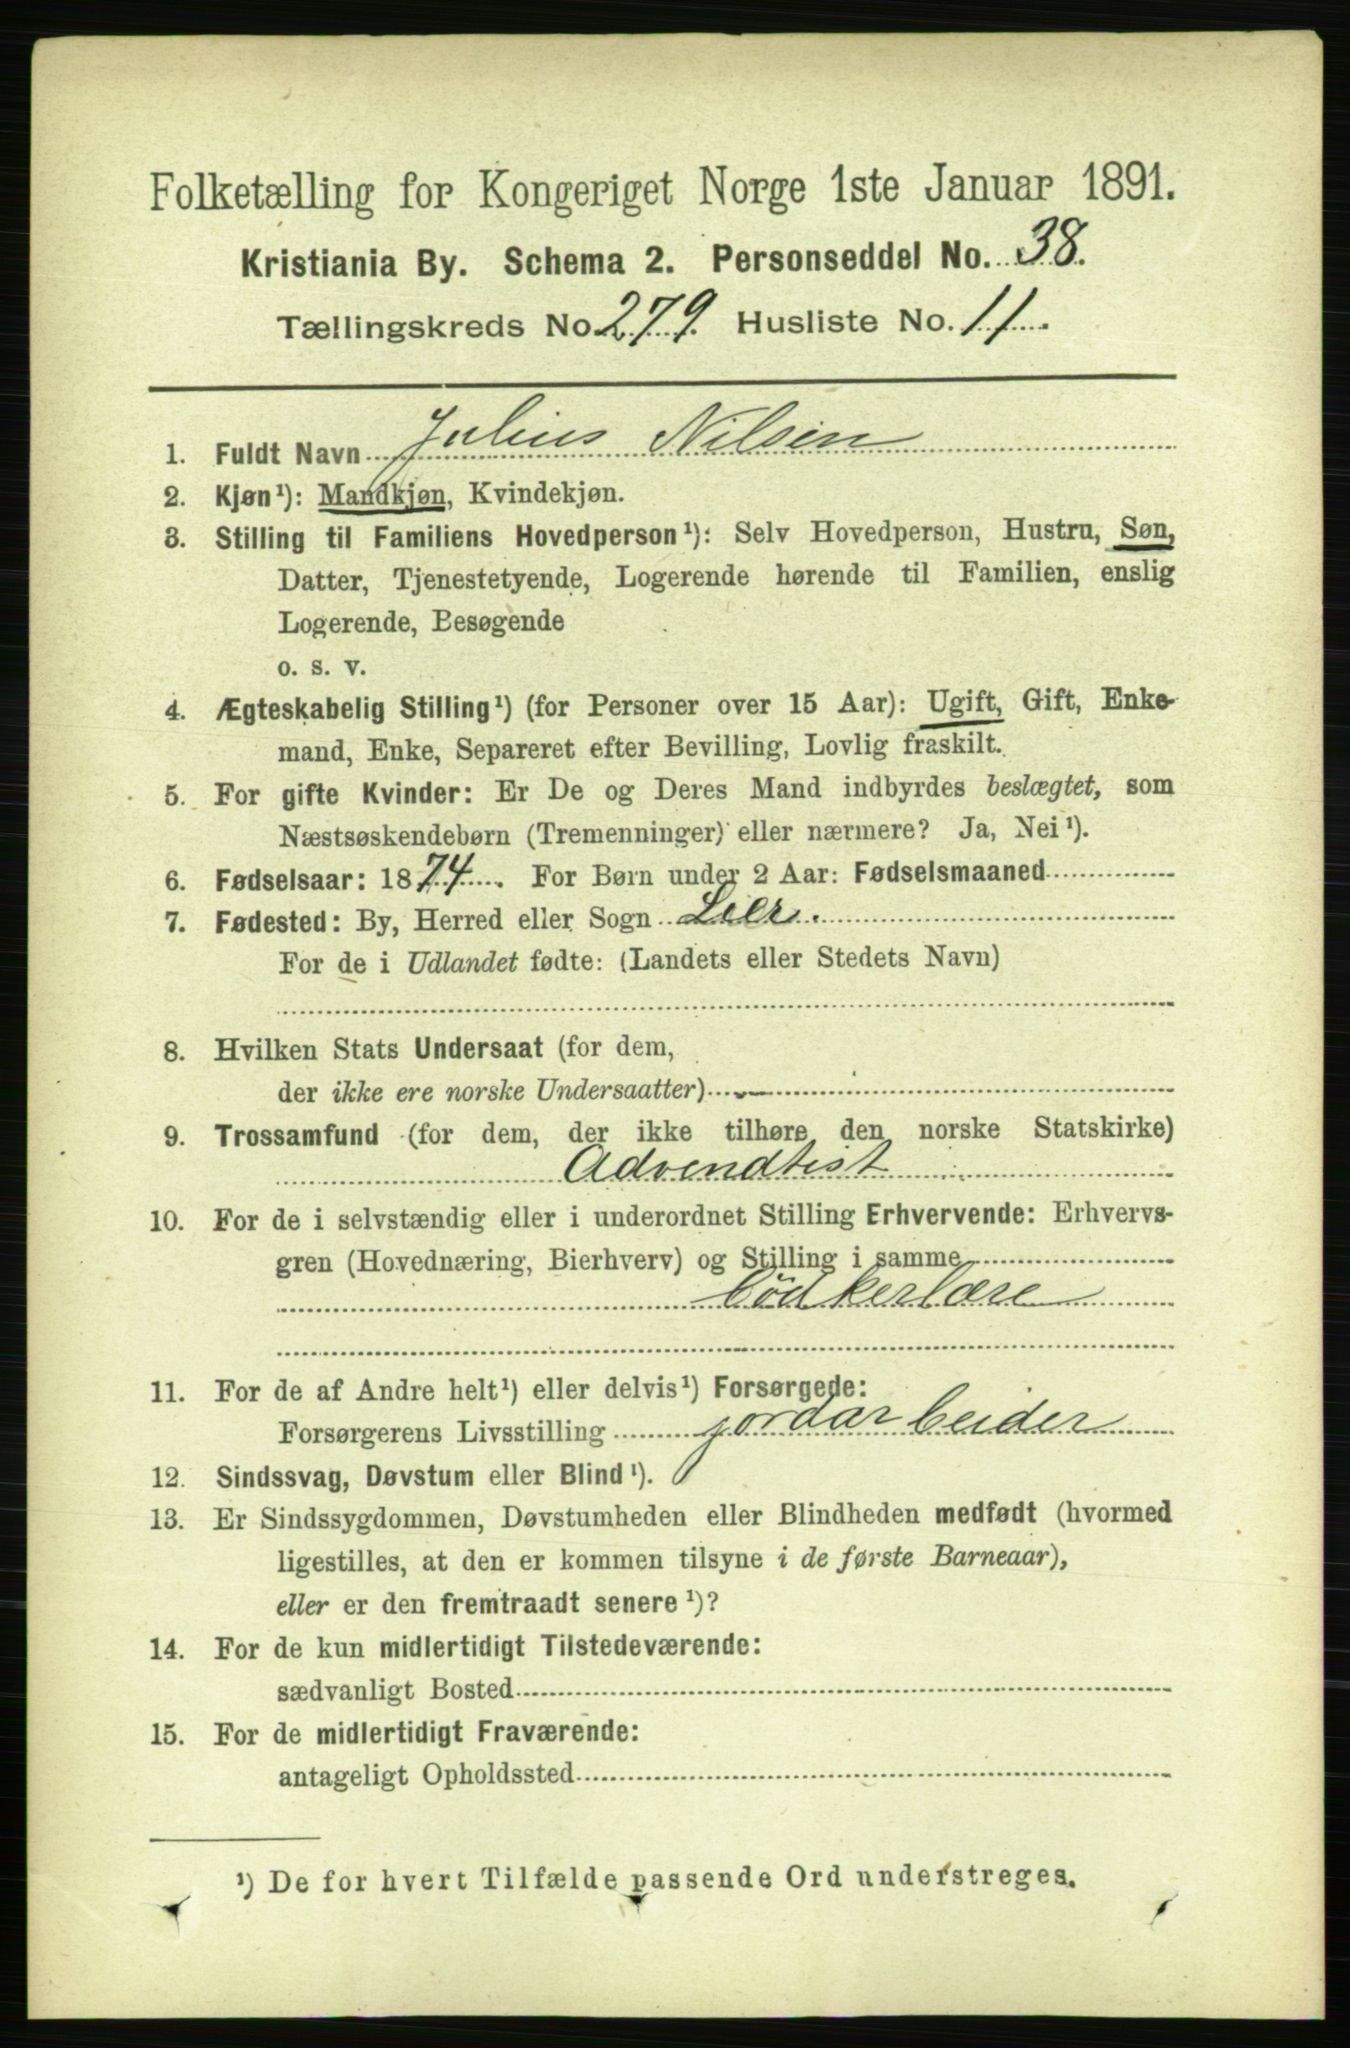 Folketælling for Kongeriget Norge 1ste Januar 1891.
Kristiania By. Schema 2. Personseddel No. 38.
Tællingskreds No. 279. Husliste No. 11.
1. Fuldt Navn Julius Nilsen
2. Kjøn¹): Mandkjøn, Kvindekjøn.
3. Stilling til Familiens Hovedperson¹): Selv Hovedperson, Hustru, Søn,
Datter, Tjenestetyende, Logerende hørende til Familien, enslig
Logerende, Besøgende
o. s. v.
4. Ægteskabelig Stilling¹) (for Personer over 15 Aar): Ugift, Gift, Enke-
mand, Enke, Separeret efter Bevilling, Lovlig fraskilt.
5. For gifte Kvinder: Er De og Deres Mand indbyrdes beslægtet, som
Næstsøskendebørn (Tremenninger) eller nærmere? Ja, Nei¹).
6. Fødselsaar: 1874. For Børn under 2 Aar: Fødselsmaaned
7. Fødested: By, Herred eller Sogn Lier.
For de i Udlandet fødte: (Landets eller Stedets Navn)
8. Hvilken Stats Undersaat (for dem,
der ikke ere norske Undersaatter)
9. Trossamfund (for dem, der ikke tilhøre den norske Statskirke)
Advendtist
10. For de i selvstændig eller i underordnet Stilling Erhvervende: Erhvervs-
gren (Hovednæring, Bierhverv) og Stilling i samme
bødkerlære
11. For de af Andre helt¹) eller delvis¹) Forsørgede:
Forsørgerens Livsstilling jordarbeider
12. Sindssvag, Døvstum eller Blind¹).
13. Er Sindssygdommen, Døvstumheden eller Blindheden medfødt (hvormed
ligestilles, at den er kommen tilsyne i de første Barneaar),
eller er den fremtraadt senere¹)?
14. For de kun midlertidigt Tilstedeværende:
sædvanligt Bosted
15. For de midlertidigt Fraværende:
antageligt Opholdssted
¹) De for hvert Tilfælde passende Ord understreges.